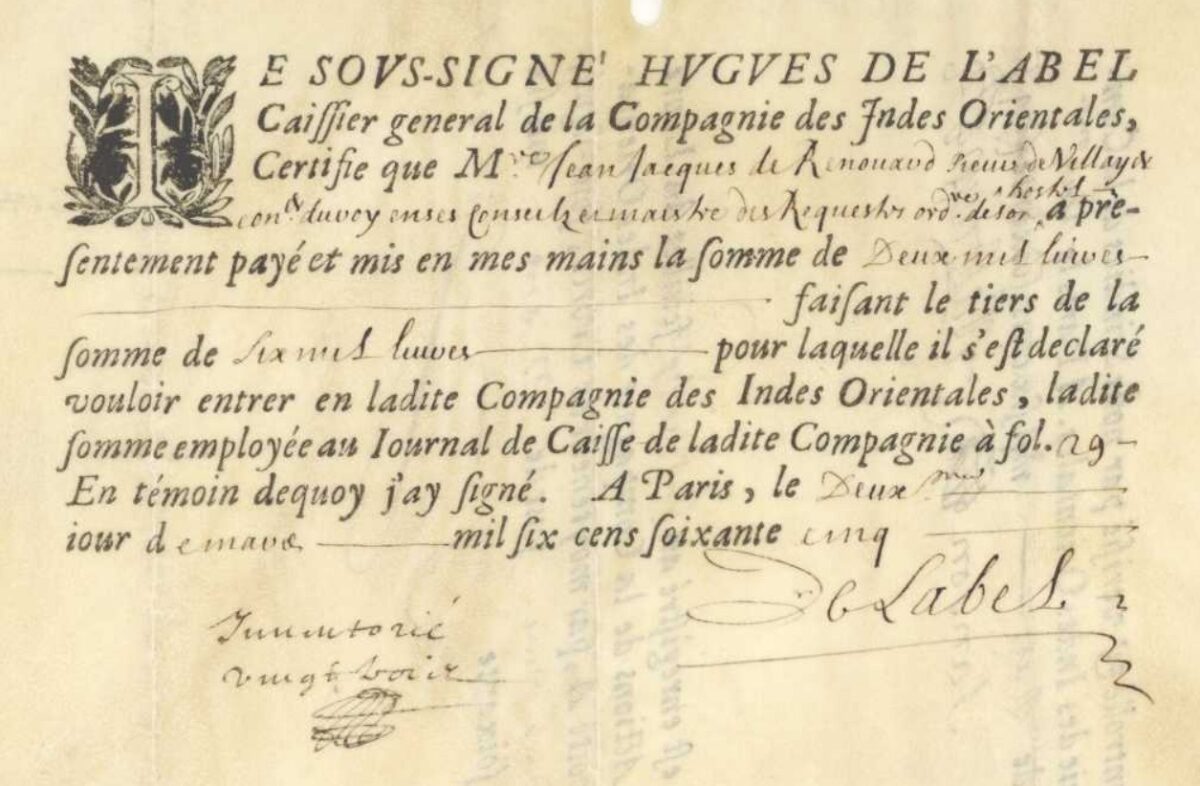 IE SOVS-SIGNE' HVGVES DE L'ABEL
Caiſſier general de la Compagnie des Indes Orientales,
Certifie que M.re Jean Jacques de Renouard de Villayer
con.er du roy en ses conseilz et maistre des Requestes ord.re de son hostel a pre-
ſentement payé et mis en mes mains la ſomme de Deux mil liures
faiſant le tiers de la
ſomme de Six mil liures pour laquelle il s'eſt declaré
vouloir entrer en ladite Compagnie des Indes Orientales, ladite
ſomme employée au Iournal de Caiſſe de ladite Compagnie à fol. 29
En témoin dequoy j'ay ſigné. A Paris, le Deux.me
iour de mars mil ſix cens ſoixante cinq
De Label
Inuentorié
vingt trois